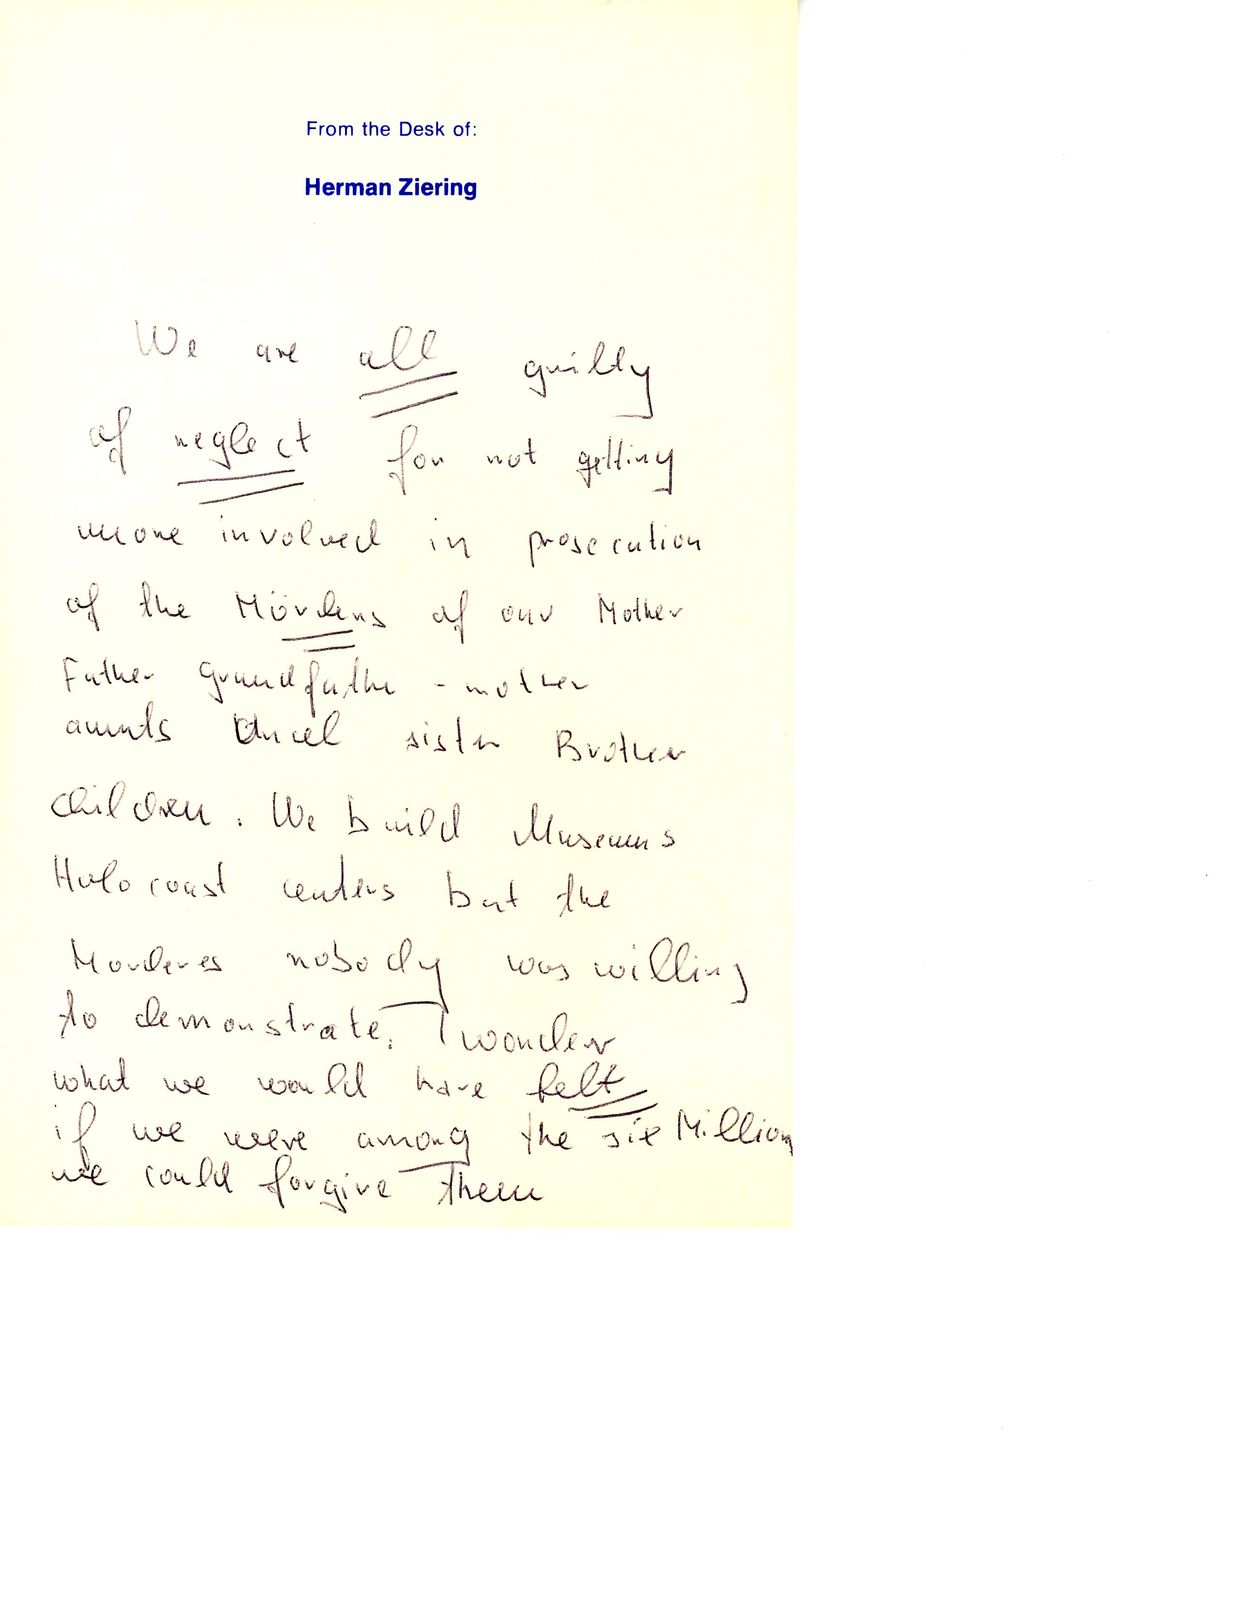 From the Desk of:
Herman Ziering
We are all guilty
of neglect for not getting
more involved in prosecution
of the Mörders of our Mother
Father Grandfather - mother
aunts Uncel sister Brother
children. We build Museums
Holocoust centers but the
Morderes nobody was willing
to demonstrate. I wonder
what we would have felt
if we were among the six Million
we could forgive them